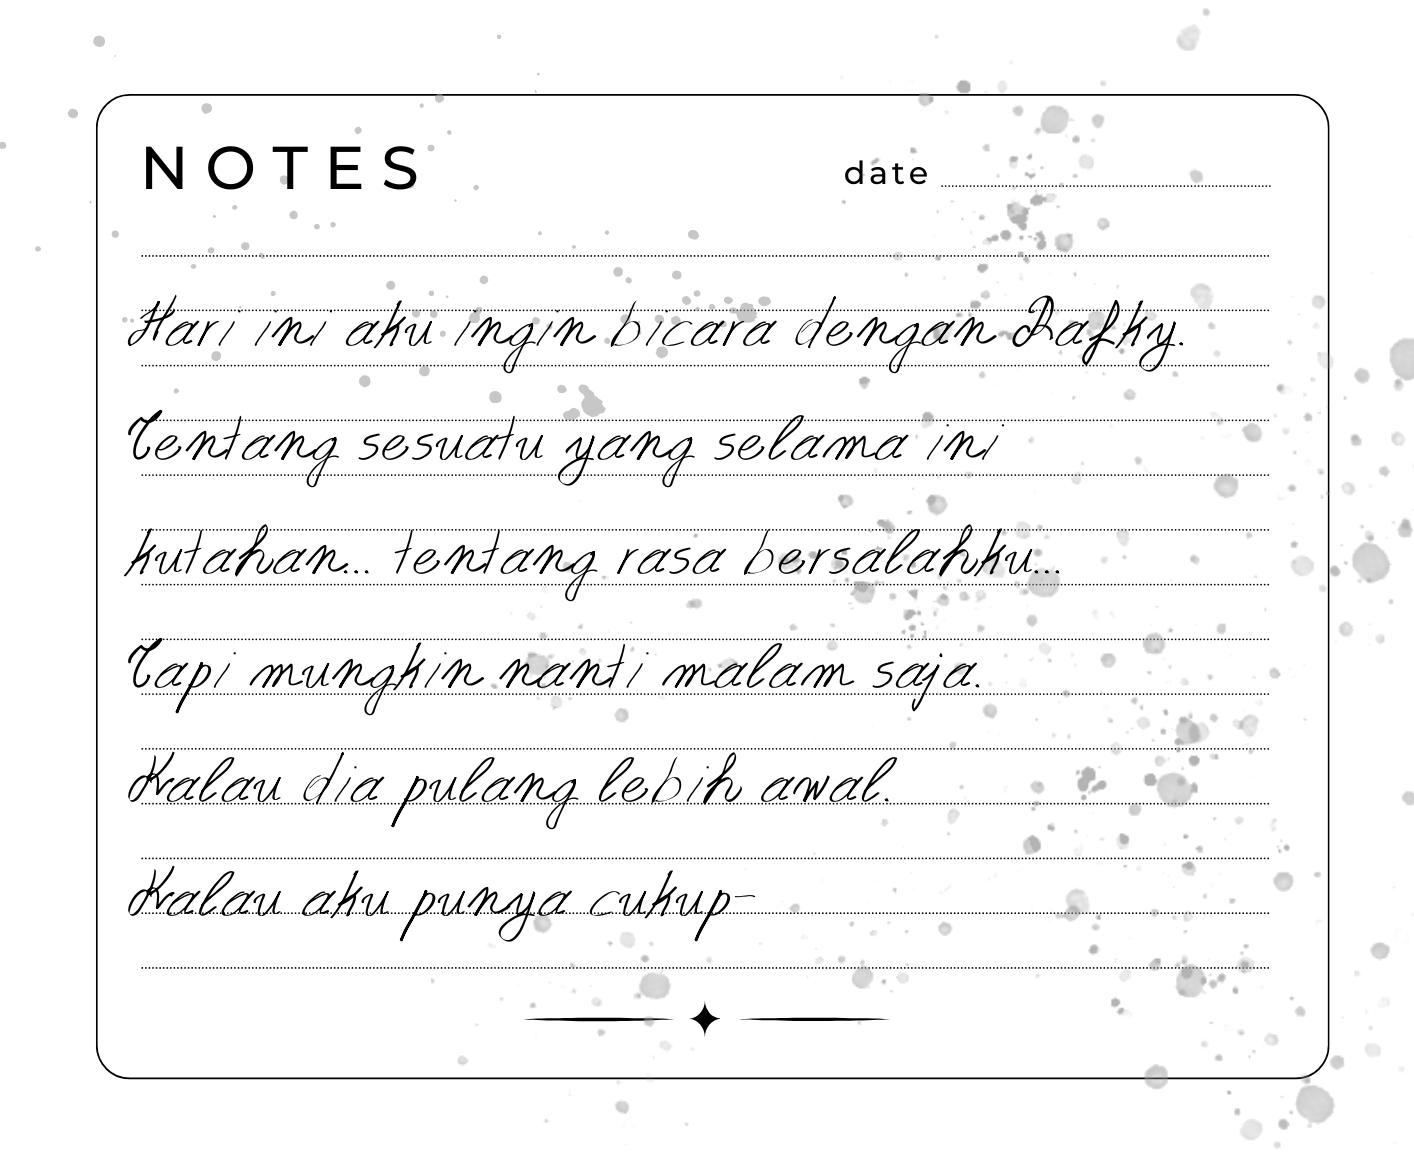 NOTES
date
Hari ini aku ingin bicara dengan Rafky.
Tentang sesuatu yang selama ini
kutahan... tentang rasa bersalahku...
Tapi mungkin nanti malam saja.
Kalau dia pulang lebih awal.
Kalau aku punya cukup-